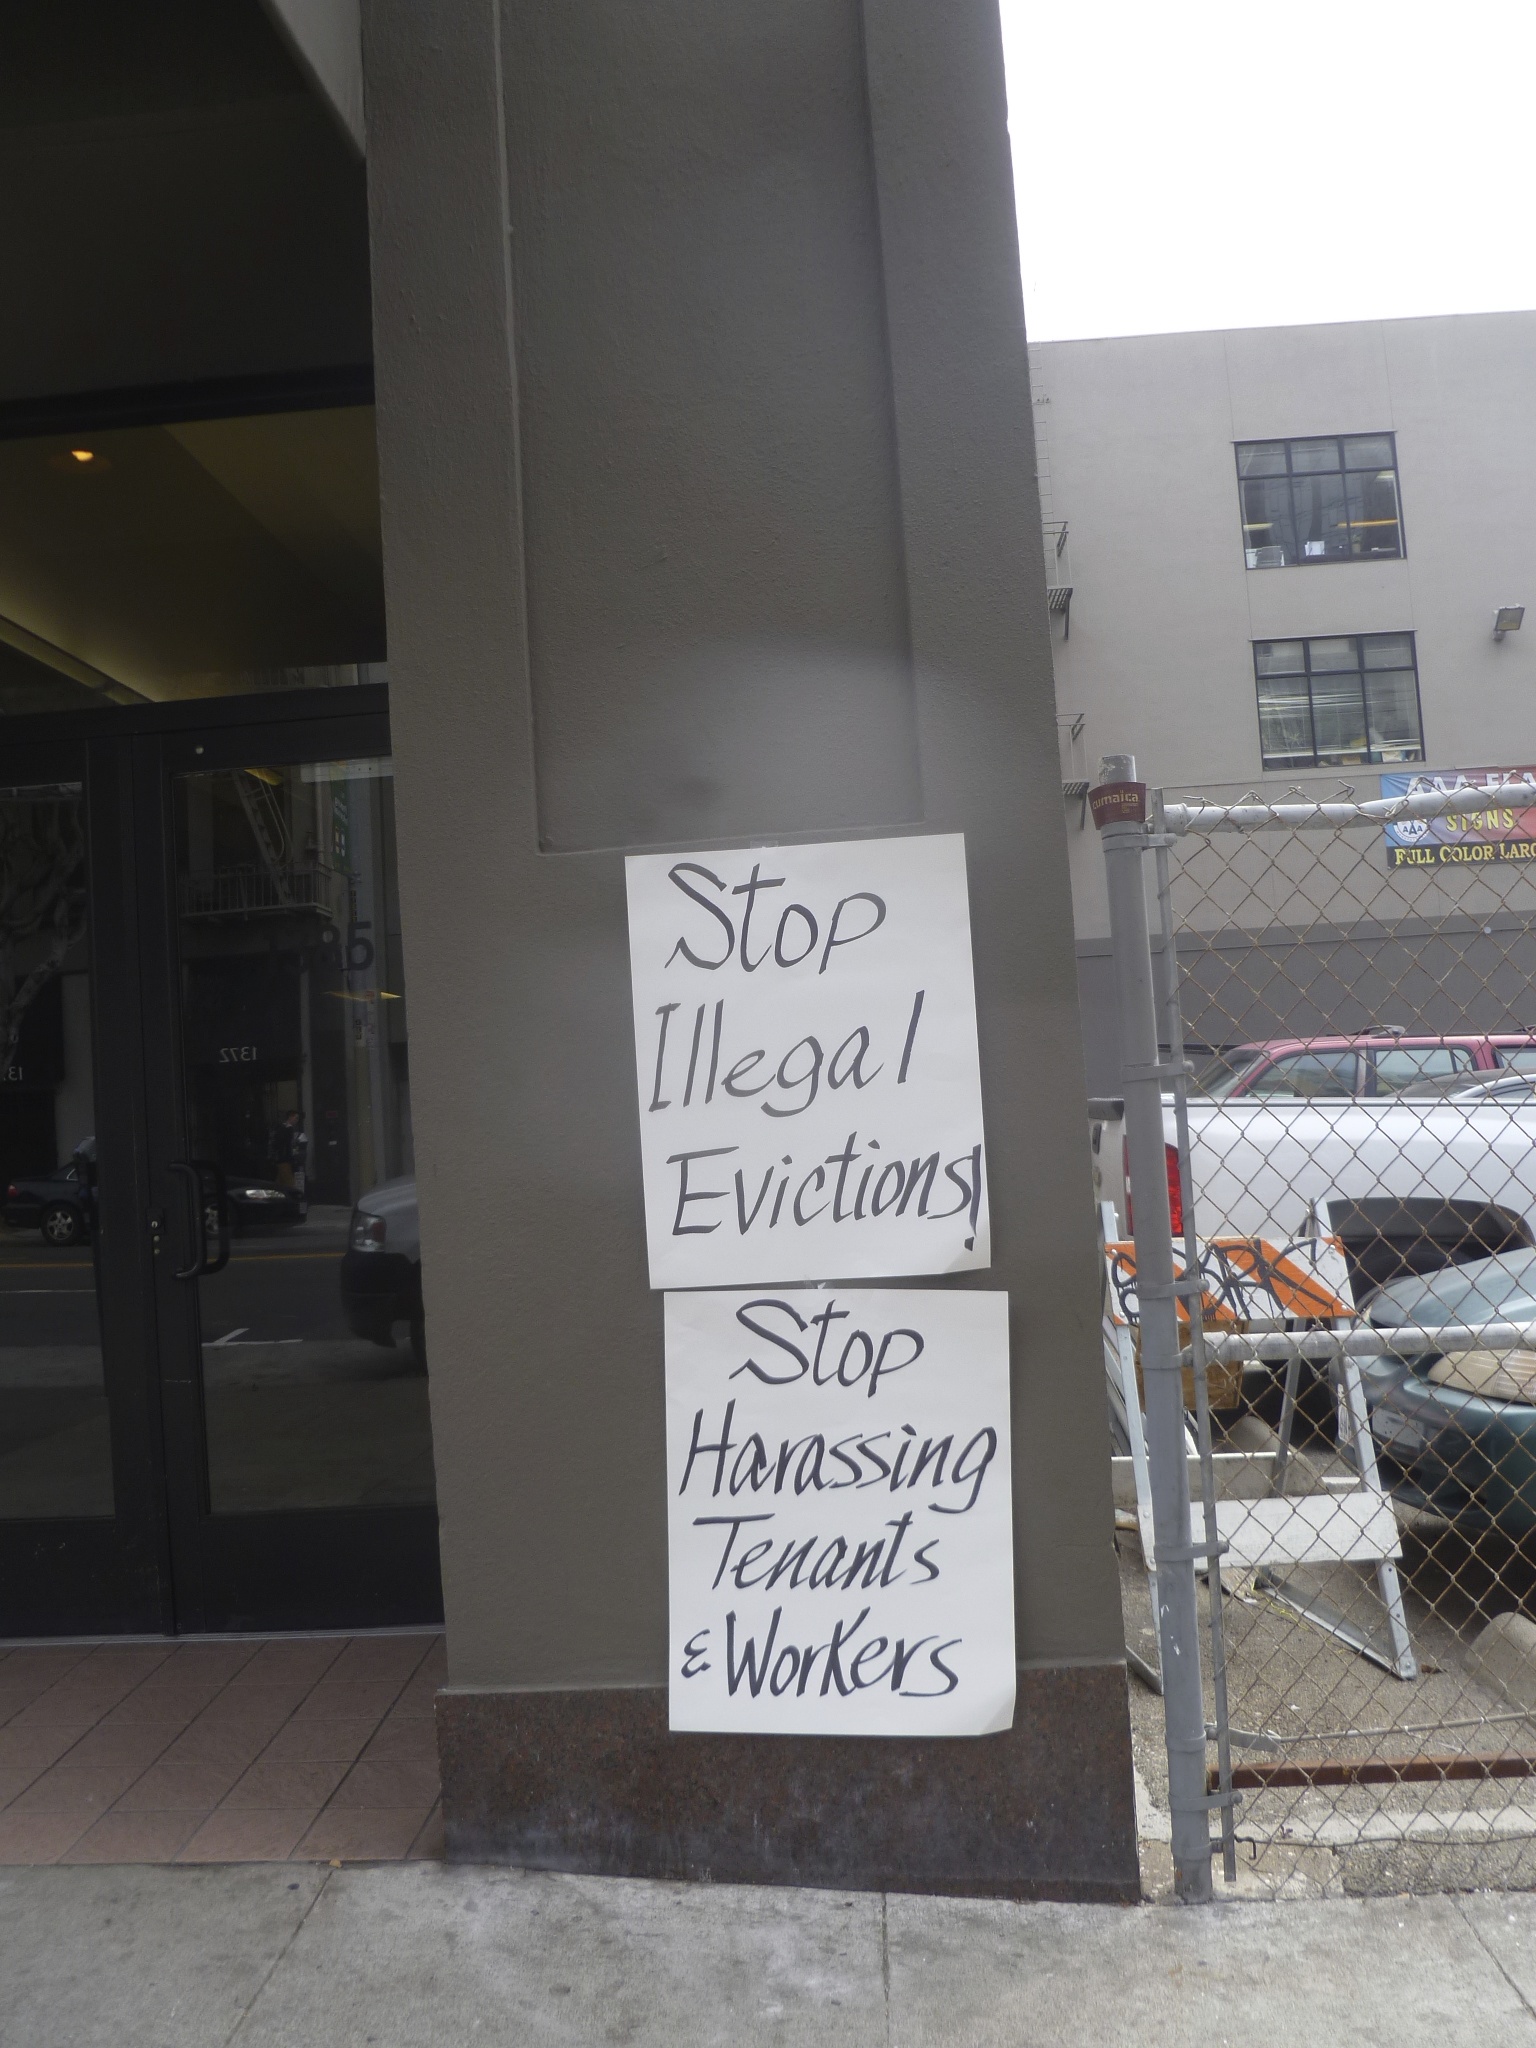 Stop
Illegal
Evictions!
Stop
Harassing
Tenants
& Workers
cumaica
SIGNS
AAA
FULL COLOR
1372